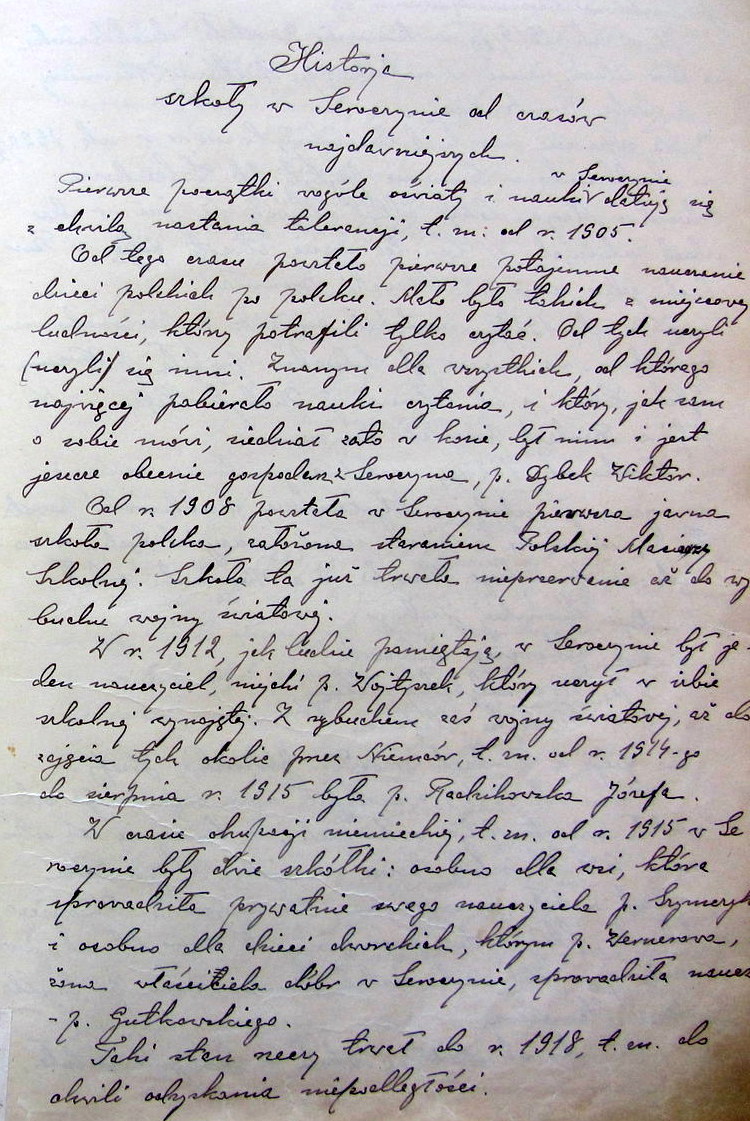 Historja
szkoły w Seroczynie od czasów
najdawniejszych.
Pierwsze początki wogóle oświaty i nauki w Seroczynie datują się
z chwilą nastania tolerancji, t. zn. od r. 1905.
Od tego czasu powstało pierwsze potajemne nauczanie
dzieci polskich po polsku. Mało było takich z miejscowej
ludności, którzy potrafili tylko czytać. Od tych uczyli
(uczyli) się inni. Znanym dla wszystkich, od którego
najwięcej pobierało nauki czytania, i który, jak sam
o sobie mówi, siedział zato w kozie, był nim i jest
jeszcze obecnie gospodarz z Seroczyna, p. Dybek Wiktor.
Od r. 1908 powstała w Seroczynie pierwsza jawna
szkoła polska, założona staraniem Polskiej Macierzy
Szkolnej. Szkoła ta już trwała nieprzerwanie aż do wy
buchu wojny światowej.
W r. 1912, jak ludzie pamiętają, w Seroczynie był je-
den nauczyciel, niejaki p. Wojtyszek, który uczył w izbie
szkolnej wynajętej. Z wybuchem zaś wojny światowej, aż do
zajęcia tych okolic przez Niemców, t. zn. od r. 1914-go
do sierpnia r. 1915 była p. Radzikowska Józefa.
W czasie okupacji niemieckiej, t. zn. od r. 1915 w Se
roczynie były dwie szkółki: osobno dla wsi, która
sprowadziła prywatnie swego nauczyciela p. Szymczyk
i osobno dla dzieci dworskich, którym p. Wernerowa,
żona właściciela dóbr w Seroczynie, sprowadziła naucz
- p. Gutkowskiego.
Taki stan rzeczy trwał do r. 1918, t. zn. do
chwili odzyskania niepodległości.